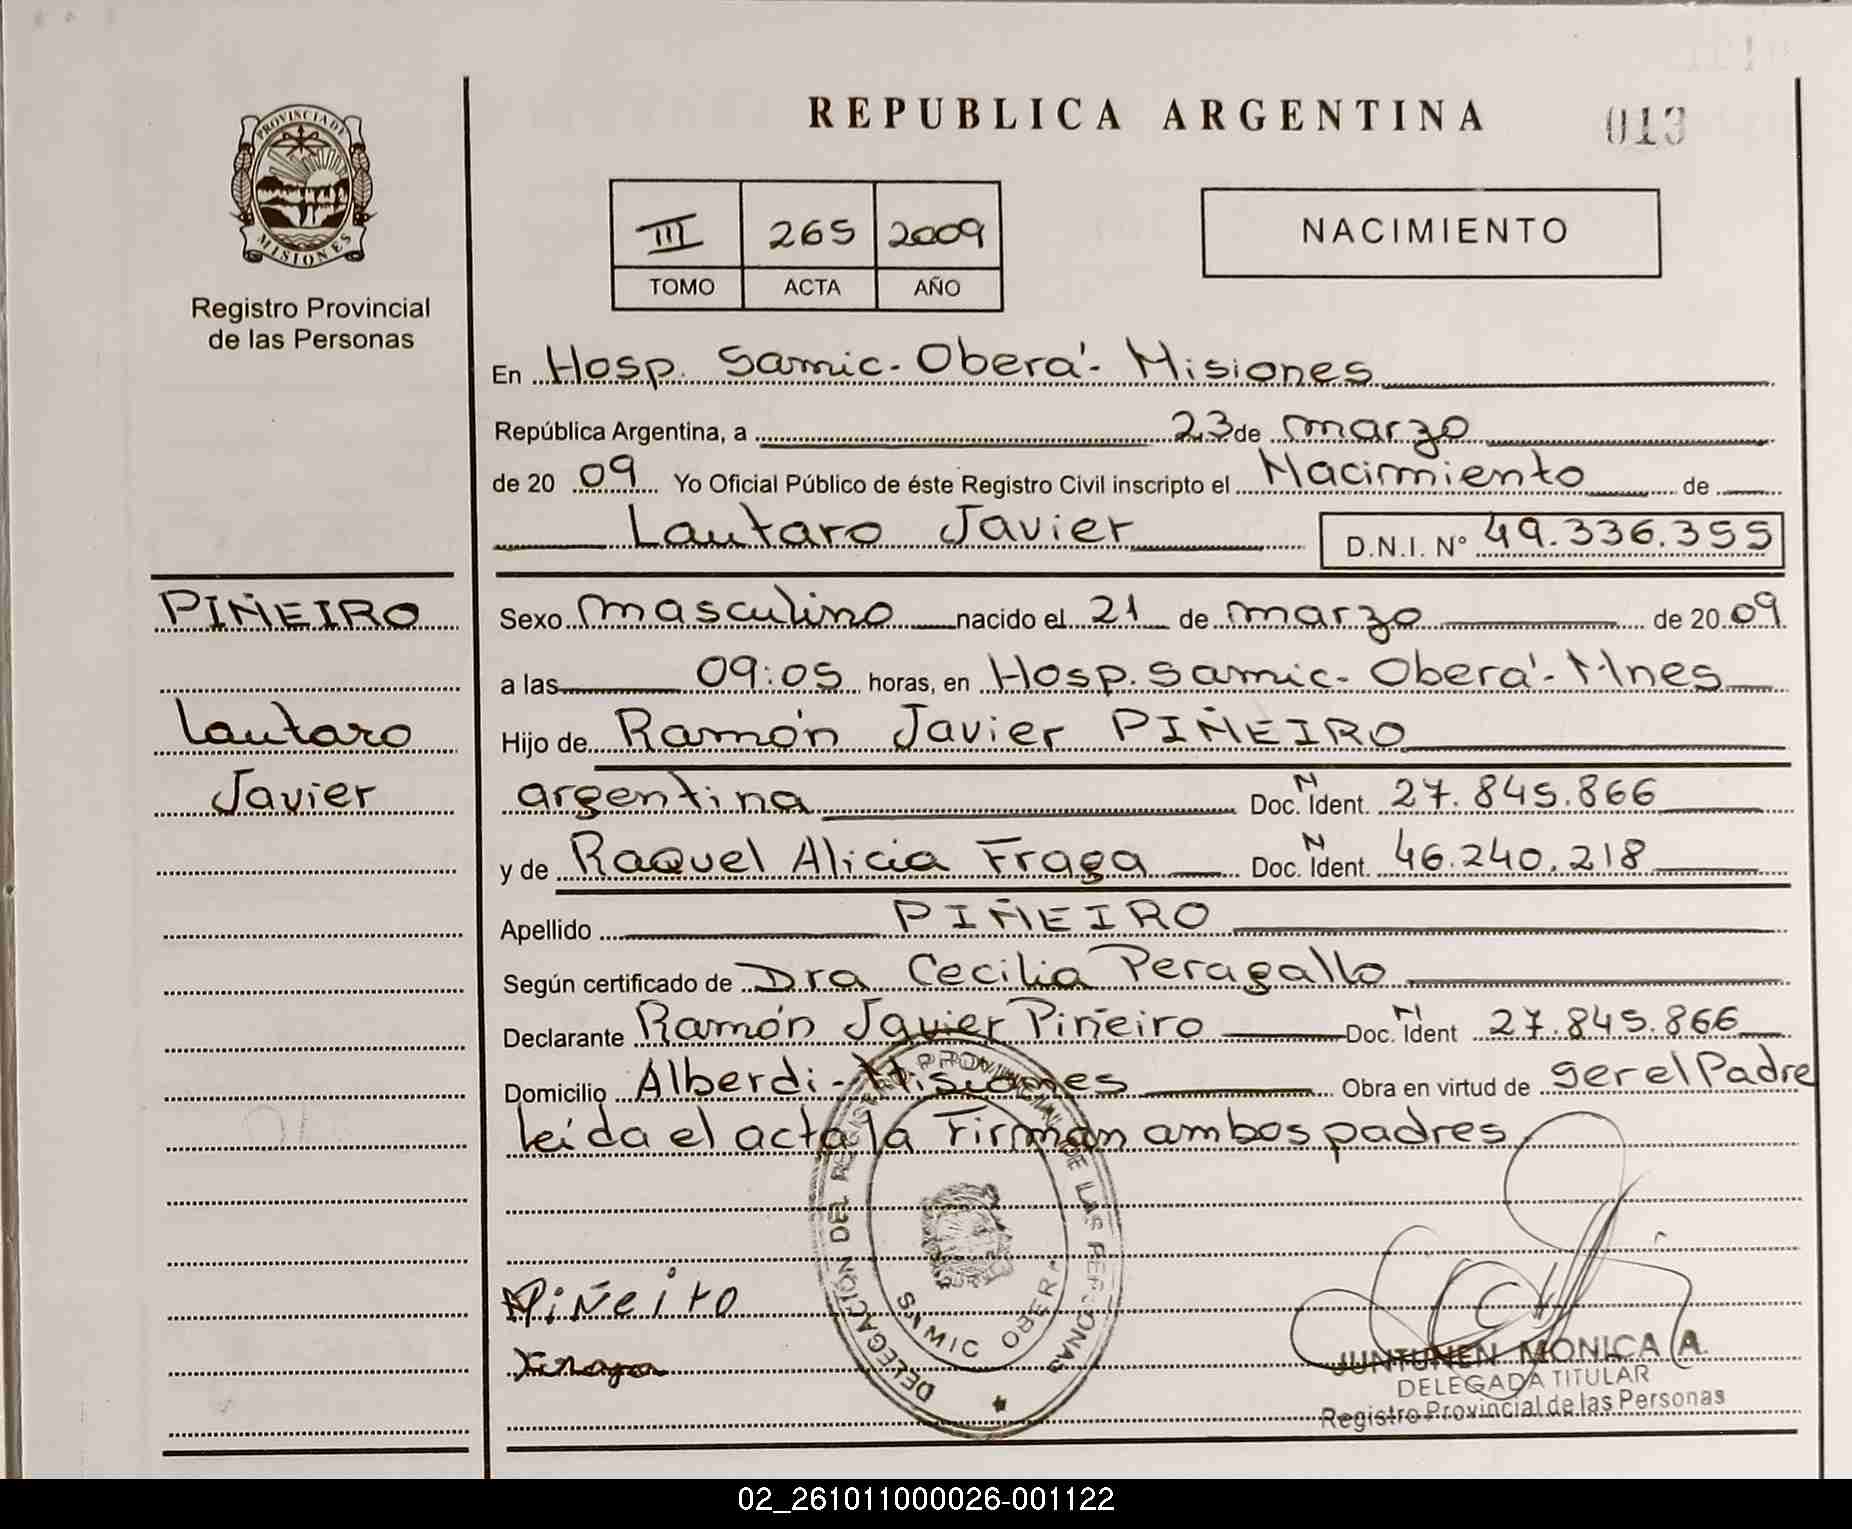 REPUBLICA ARGENTINA
013
PROVINCIA DE
MISIONES
Registro Provincial
de las Personas
III 265 2009
TOMO ACTA AÑO
NACIMIENTO
En Hosp. Samic - Oberá - Misiones
República Argentina, a 23 de marzo
de 20 09 Yo Oficial Público de éste Registro Civil inscripto el Nacimiento de
Lautaro Javier D.N.I. N° 49.336.355
PIÑEIRO
Lautaro
Javier
Sexo masculino nacido el 21 de marzo de 20 09
a las 09:05 horas, en Hosp. Samic - Oberá - Mnes
Hijo de Ramón Javier PIÑEIRO
argentina Doc. N Ident. 27.845.866
y de Raquel Alicia Fraga Doc. N Ident. 46.240.218
Apellido PIÑEIRO
Según certificado de Dra Cecilia Peragallo
Declarante Ramón Javier Piñeiro Doc. N Ident 27.845.866
Domicilio Alberdi - Misiones Obra en virtud de ser el Padre
leída el acta la Firman ambos padres
DELEGACIÓN DEL REGISTRO PROVINCIAL DE LAS PERSONAS
OBERA
Piñeiro
JUNTUNEN MONICA A.
DELEGADA TITULAR
Registro Provincial de las Personas
02_261011000026-001122